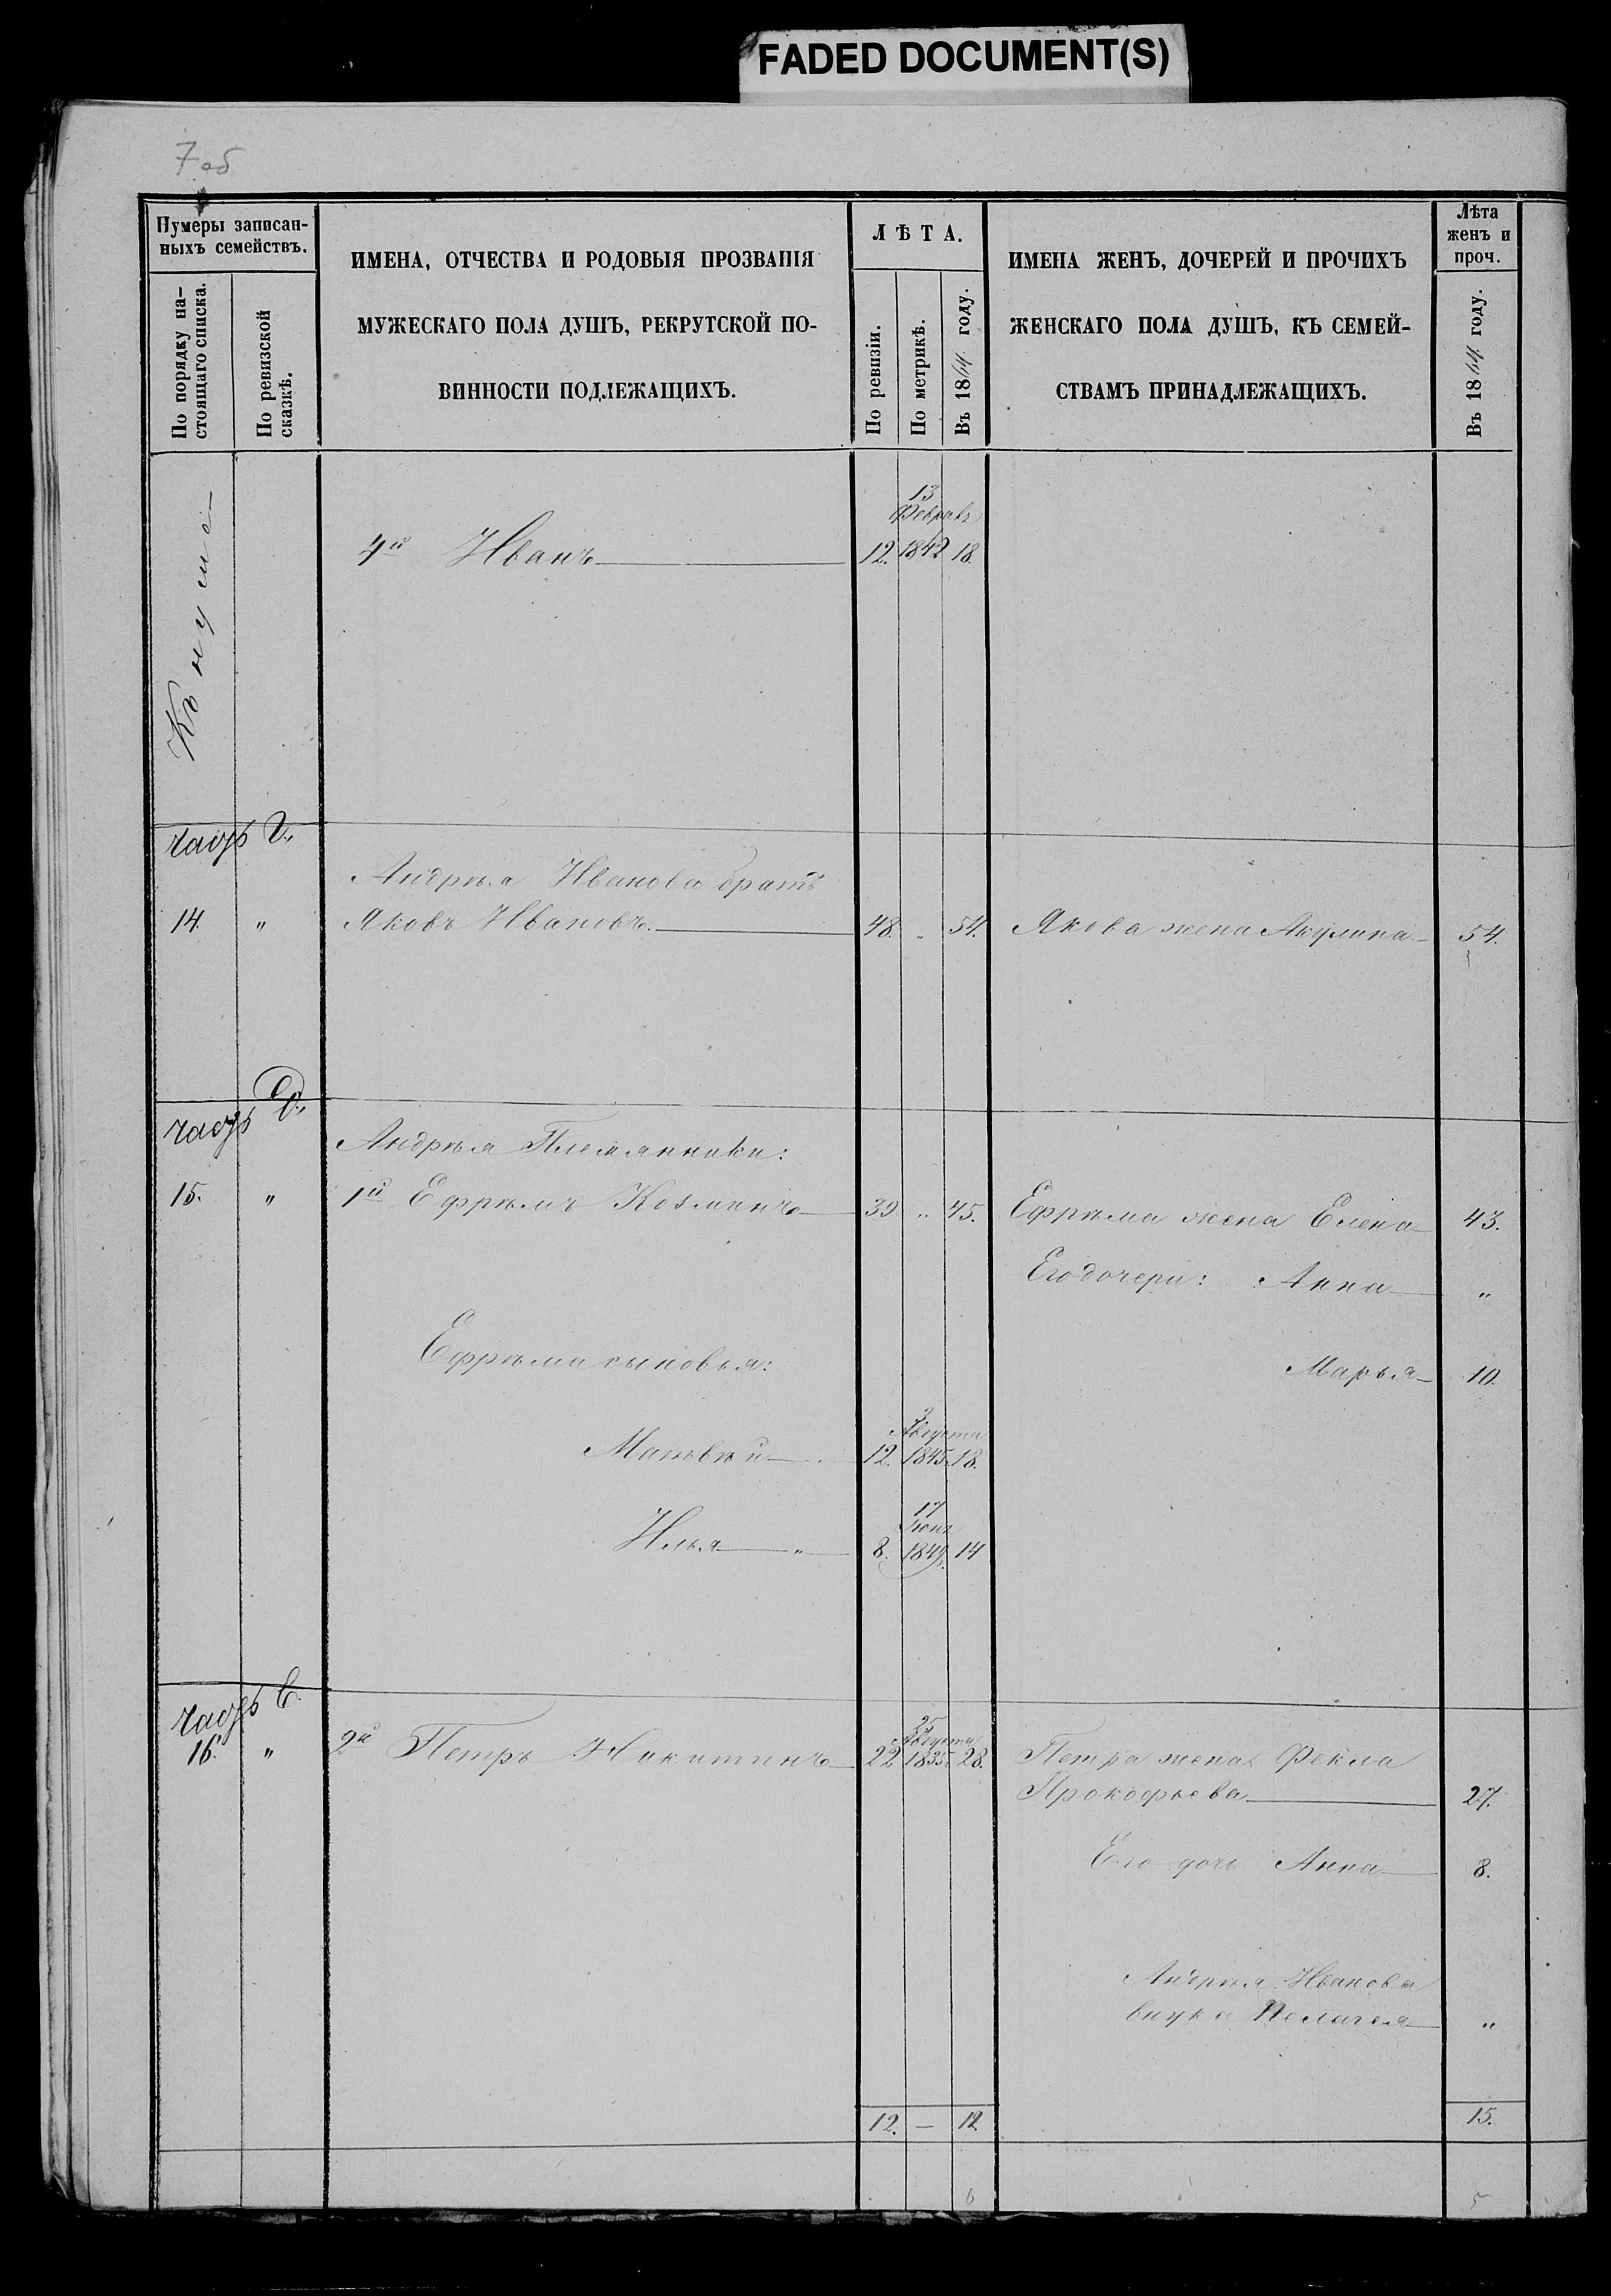 FADED DOCUMENT(S)
7 об
Нумеры записан-
ныхъ семействъ.
По порядку на-
стоящаго списка.
По ревизской
сказкѣ.
ИМЕНА, ОТЧЕСТВА И РОДОВЫЯ ПРОЗВАНІЯ
МУЖЕСКАГО ПОЛА ДУШЪ, РЕКРУТСКОЙ ПО-
ВИННОСТИ ПОДЛЕЖАЩИХЪ.
ЛѢТА.
По ревизіи.
По метрикѣ.
Въ 1864 году.
ИМЕНА ЖЕНЪ, ДОЧЕРЕЙ И ПРОЧИХЪ
ЖЕНСКАГО ПОЛА ДУШЪ, КЪ СЕМЕЙ-
СТВАМЪ ПРИНАДЛЕЖАЩИХЪ.
Лѣта
женъ и
проч.
Въ 1864 году.
13
Февраля
4й Иванъ 12. 1842 18.
Андрѣя Иванова братъ
14. " Яковъ Ивановъ. 48. " 54. Якова жена Акулина 54.
Андрѣя Племянники:
15. " 1й Ефрѣмъ Козминъ 39 " 45. Ефрѣма жена Елена 43.
Его дочери: Анна "
Ефрѣма сыновья:
Марья 10.
3
Августа
Матвѣй 12. 1845. 18.
17
Іюня
Илья " 8. 1849. 14
25
Августа
16. " 2й Петръ Никитинъ 22 1835 28. Петра жена Фекла
Прокофьева 27.
Его дочь Анна 8.
Андрѣя Иванова
внука Пелагея "
12. — 12. 15.
6 5